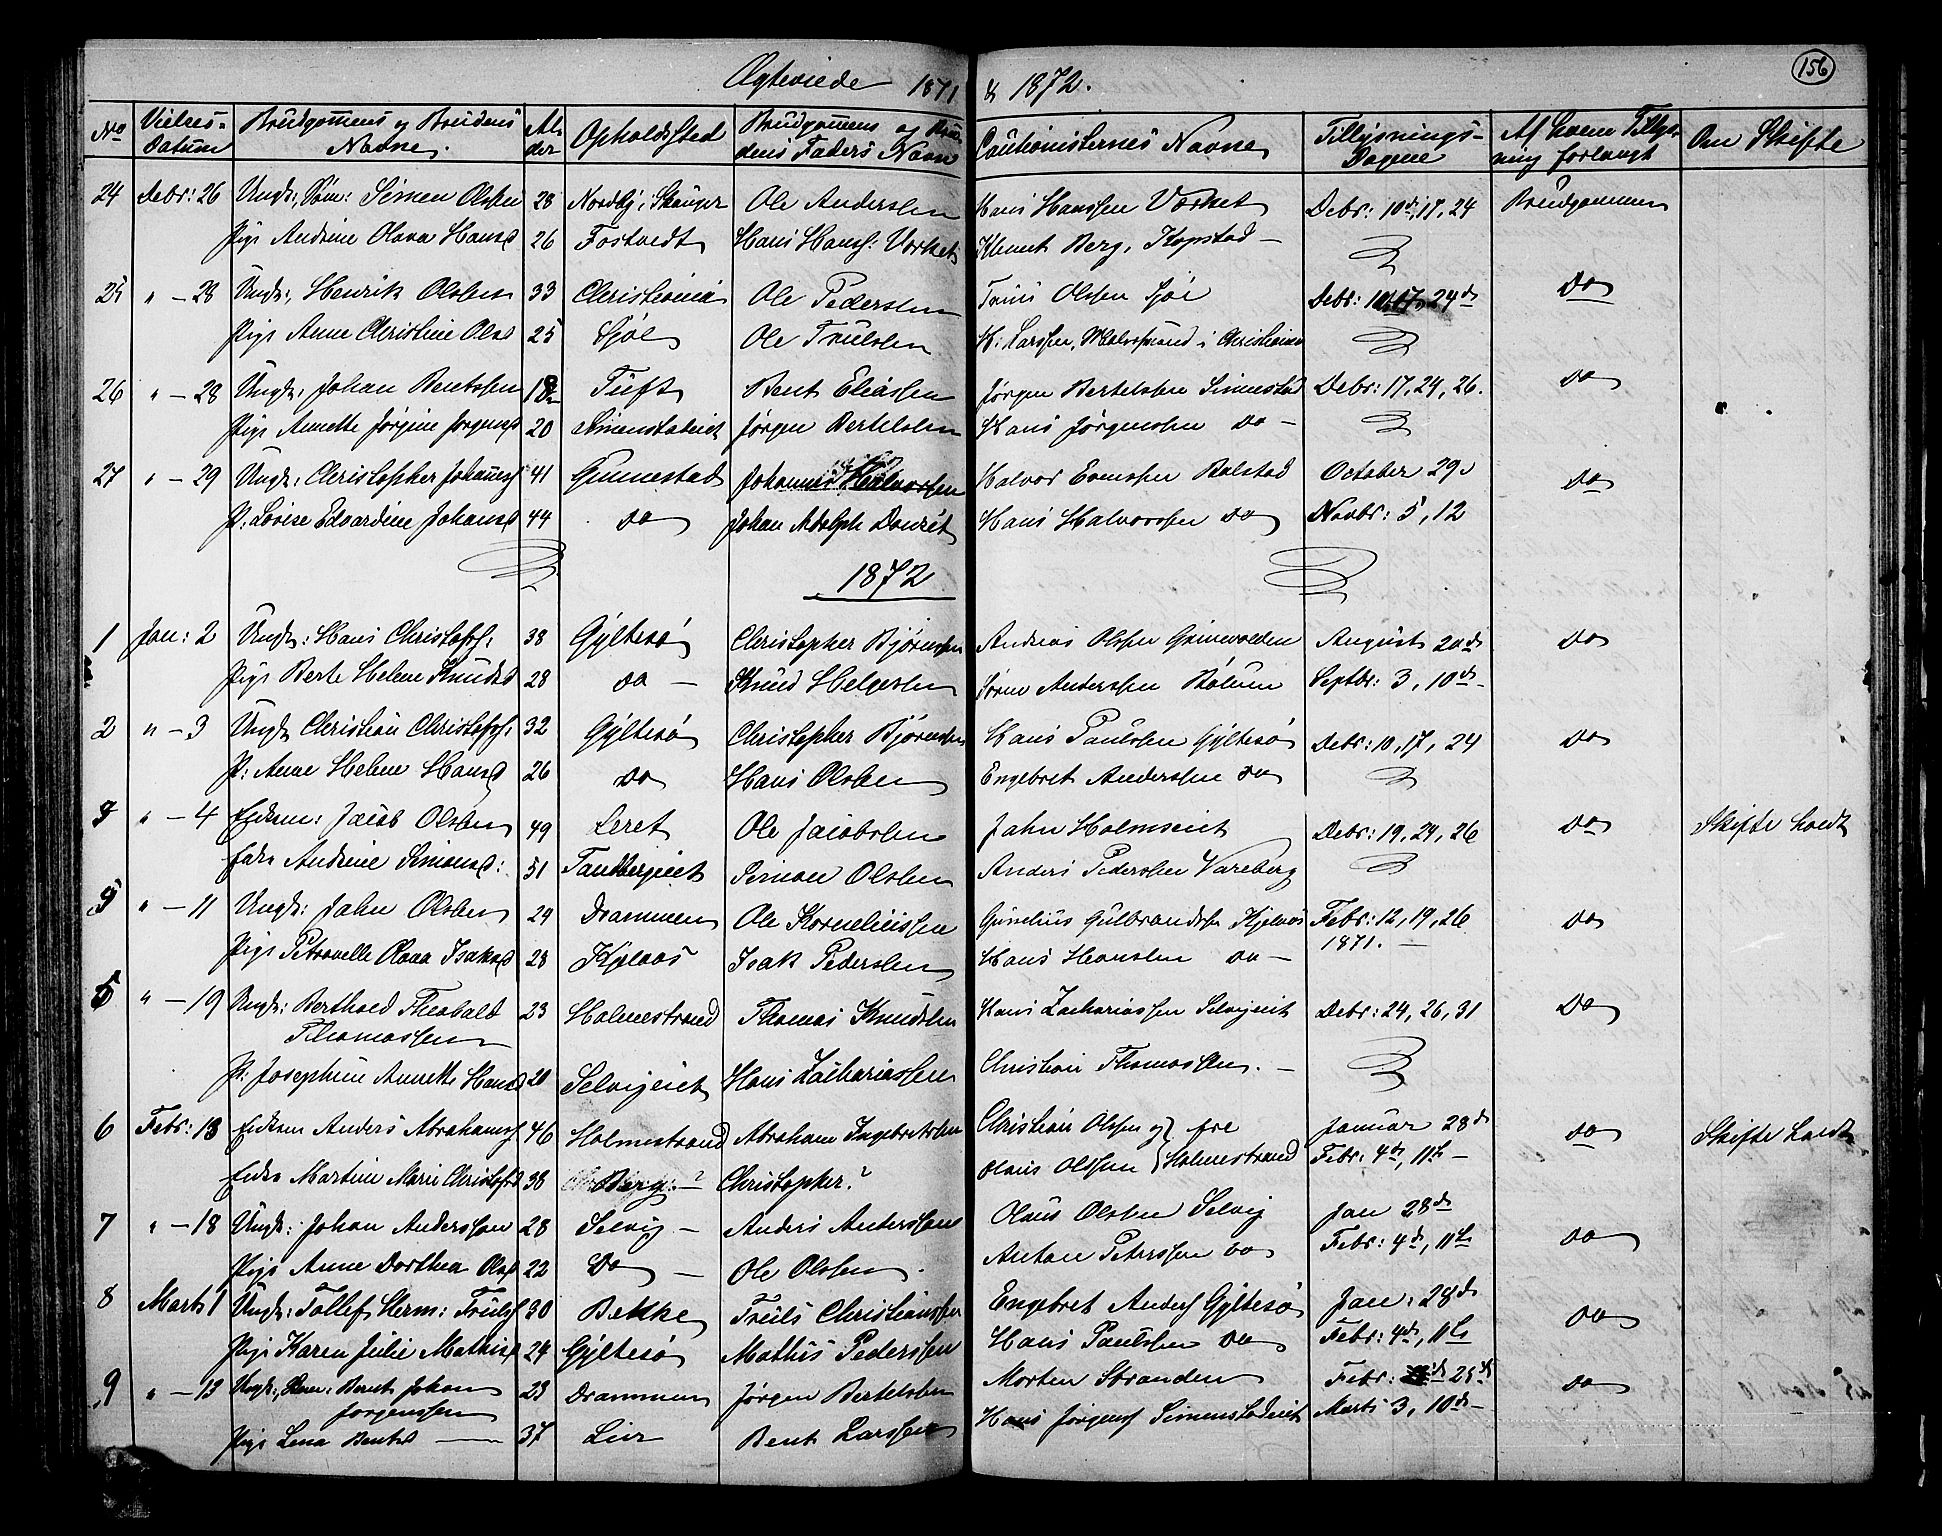 156
Ægteviede 1871 & 1872.
No Vielses- Datum Brudgommens og Brudens Navne. Al- der Opholdssted Brudgommens og Bru- dens Faders Navn Cautionisternes Navne Tillysnings- Dagene Af hvem Tillys- ning forlangt Om Skifte
24 Debr: 26 Ungk:, Søm: Simen Olssen 28 Nordby i Skouger Ole Anderssen Hans Hanssen Værket Debr: 10de, 17, 24 Brudgommen
Pige Andrine Olava Hansd 26 Fostvedt Hans Hanss: Værket Klemet Berg, Kopstad —
25 " — 28 Ungk:, Henrik Olssen 33 Christiania Ole Pederssen Truls Olssen Sjøl Debr: 10, 17, 24de do
Pige Anne Christine Olsd 25 Sjøl Ole Trulssen H: Larssen, i Christiania
26 " — 28 Ungk: Johan Bentssen 18 Tuft Bent Eliassen Jørgen Bertelssen Simenstad Debr: 17, 24, 26. do
Pige Annette Jørgine Jørgensd 20 Simenstadeiet Jørgen Bertelssen Hans Jørgenssen do —
27 " — 29 Ungk: Christopher Johanness 41 Gunnestad Johannes Halvorssen Halvor Evenssen Bolstad October 29 do
P: Lovise Edvardine Johansd 44 do Johan Adolph Hans Halvorssen do Novbr: 5, 12
1872
1 Jan: 2 Ungk: Hans Christophs: 38 Gyltesø Christopher Bjørnssen Andreas Olssen Grinevolden August 20de do
Pige Berte Helene Knudsd 28 do — Knud Helgessen Søren Anderssen Septbr: 3, 10de
2 " — 3 Ungk Christian Christophs: 32 Gyltesø Christopher Bjørnssen Hans Paulssen Gyltesø Debr: 10, 17, 24 do
P: Anne Helene Hansd 26 do Hans Olssen Engebret Anderssen do
3 " — 4 Enkem: Jacob Olssen 49 Leret Ole Jacobssen John Holmseiet Debr: 19, 24, 26 do Skifte holdt
Enke Andrine Simonsd: 51 Tautbergeiet Simon Olssen Anders Pederssen Vareberg
5 " — 11 Ungk: John Olssen 29 Drammen Ole Kornelinssen Gunelius Gulbrandss Kjeldaas Febr: 12, 19, 26 do
Pige Petronelle Olava Isaksd 28 Kjelaas Isak Pederssen Hans Hanssen do — 1871. —
5 " — 19 Ungk: Berthoed Theobald 23 Holmestrand Thomas Knudssen Hans Zachariassen Selvigeiet Debr: 24, 26, 31 do
Thomassen
P: Josephine Annette Hansd 20 Selvigeiet Hans Zachariassen Christian Thomassen. —
6 Febr: 13 Enkem Anders Abrahams 46 Holmestrand Abraham Ingebretssen Christian Olssen og fre Januar 28de do Skifte holdt
Enke Martine Marie Christophd 38 Berg: — ? Christopher? Olaus Olssen Holmestrand Febr: 4de, 11te —
7 " — 18 Ungk: Johan Anderssen 28 Selvig — Anders Anderssen Olaus Olssen Selvig Jan 28de
Pige Anne Dorthea Olsd 22 Do — Ole Olssen. Anton Peterssen do Febr: 4de, 11te do
8 Marts 1 Ungk: Tollef Herm: Truls 30 Bekke Truls Christianssen Engebret Anders Gyltesø Jan: 28de
Pige Karen Julie Mathisd 24 Gyltesø Mathis Pederssen Hans Paulssen do Febr: 4de, 11te do
9 " — 13 Ungk:, Søm: Bernt Johan 23 Drammen Jørgen Bertelssen Morten Stranden Febr: 25de do
Jørgenssen Hans Jørgens Simenstadeiet Marts 3, 10de —
Pige Lena Bentsd — 37 Lier Bent Larssen